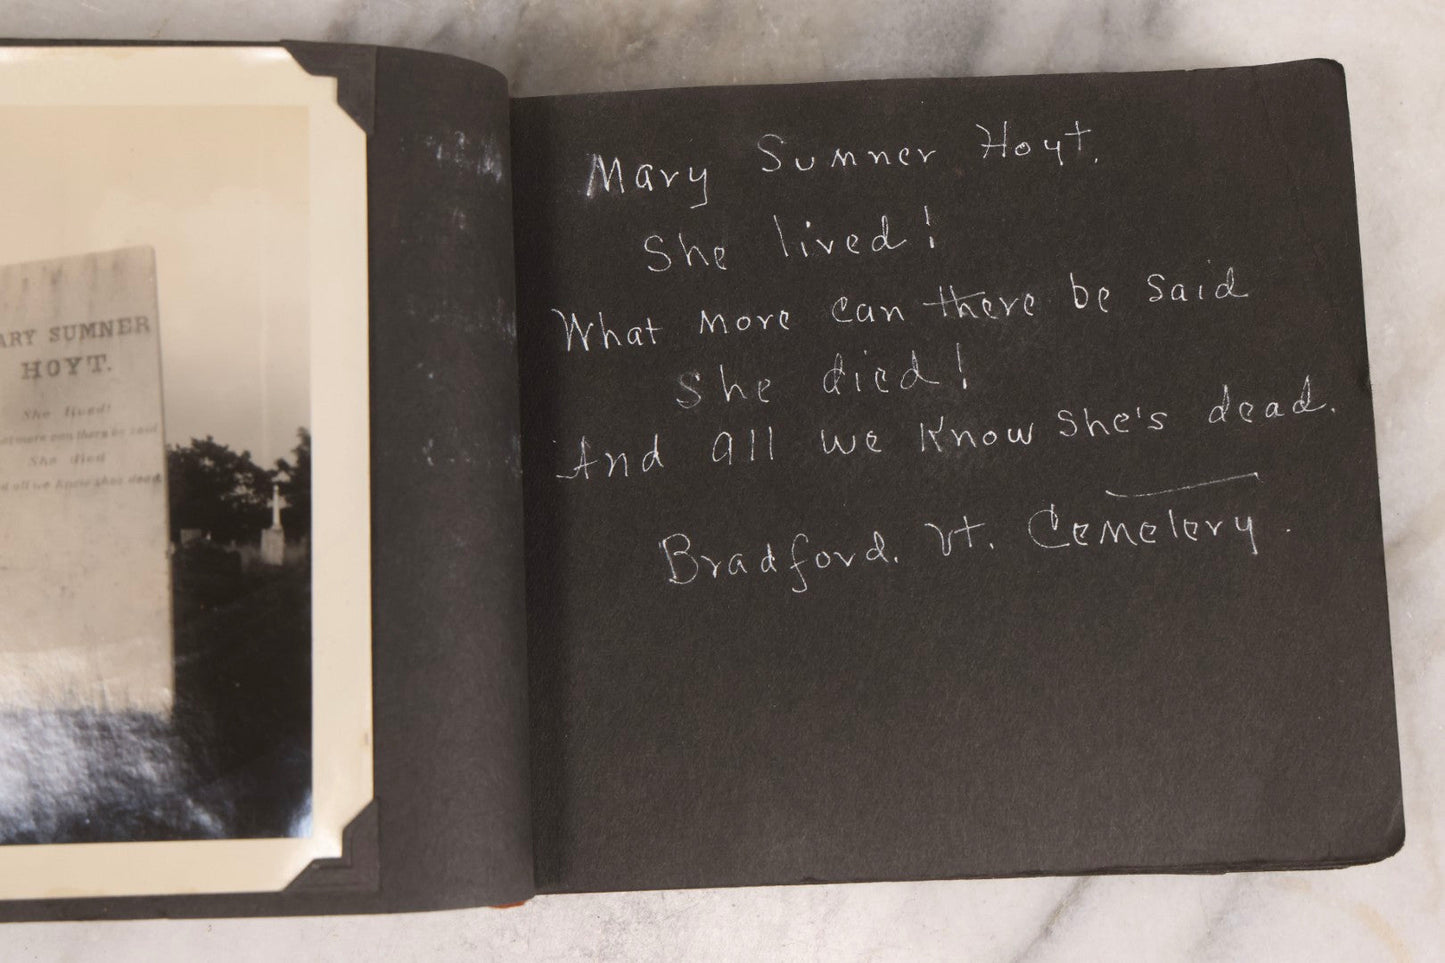 ARY SUMNER
HOYT.
She lived!
at more can there be said
She died
d all we know shes dead
Mary Sumner Hoyt.
She lived!
What more can there be said
She died!
And all we know she's dead.
Bradford. Vt. Cemetery.